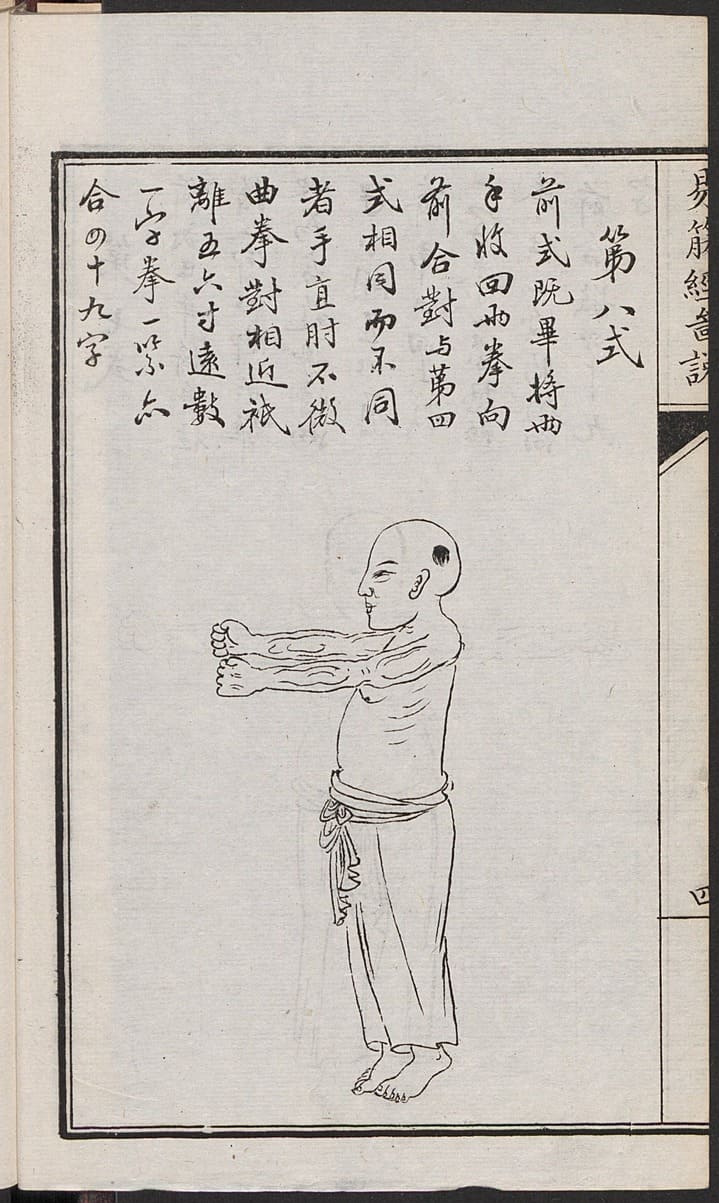 易筋經圖說
四
第八式
前式既畢將兩
手收回兩拳向
前合對与第四
式相同而不同
者手直肘不微
曲拳對相近祇
離五六寸遠數
一字拳一緊亦
合四十九字